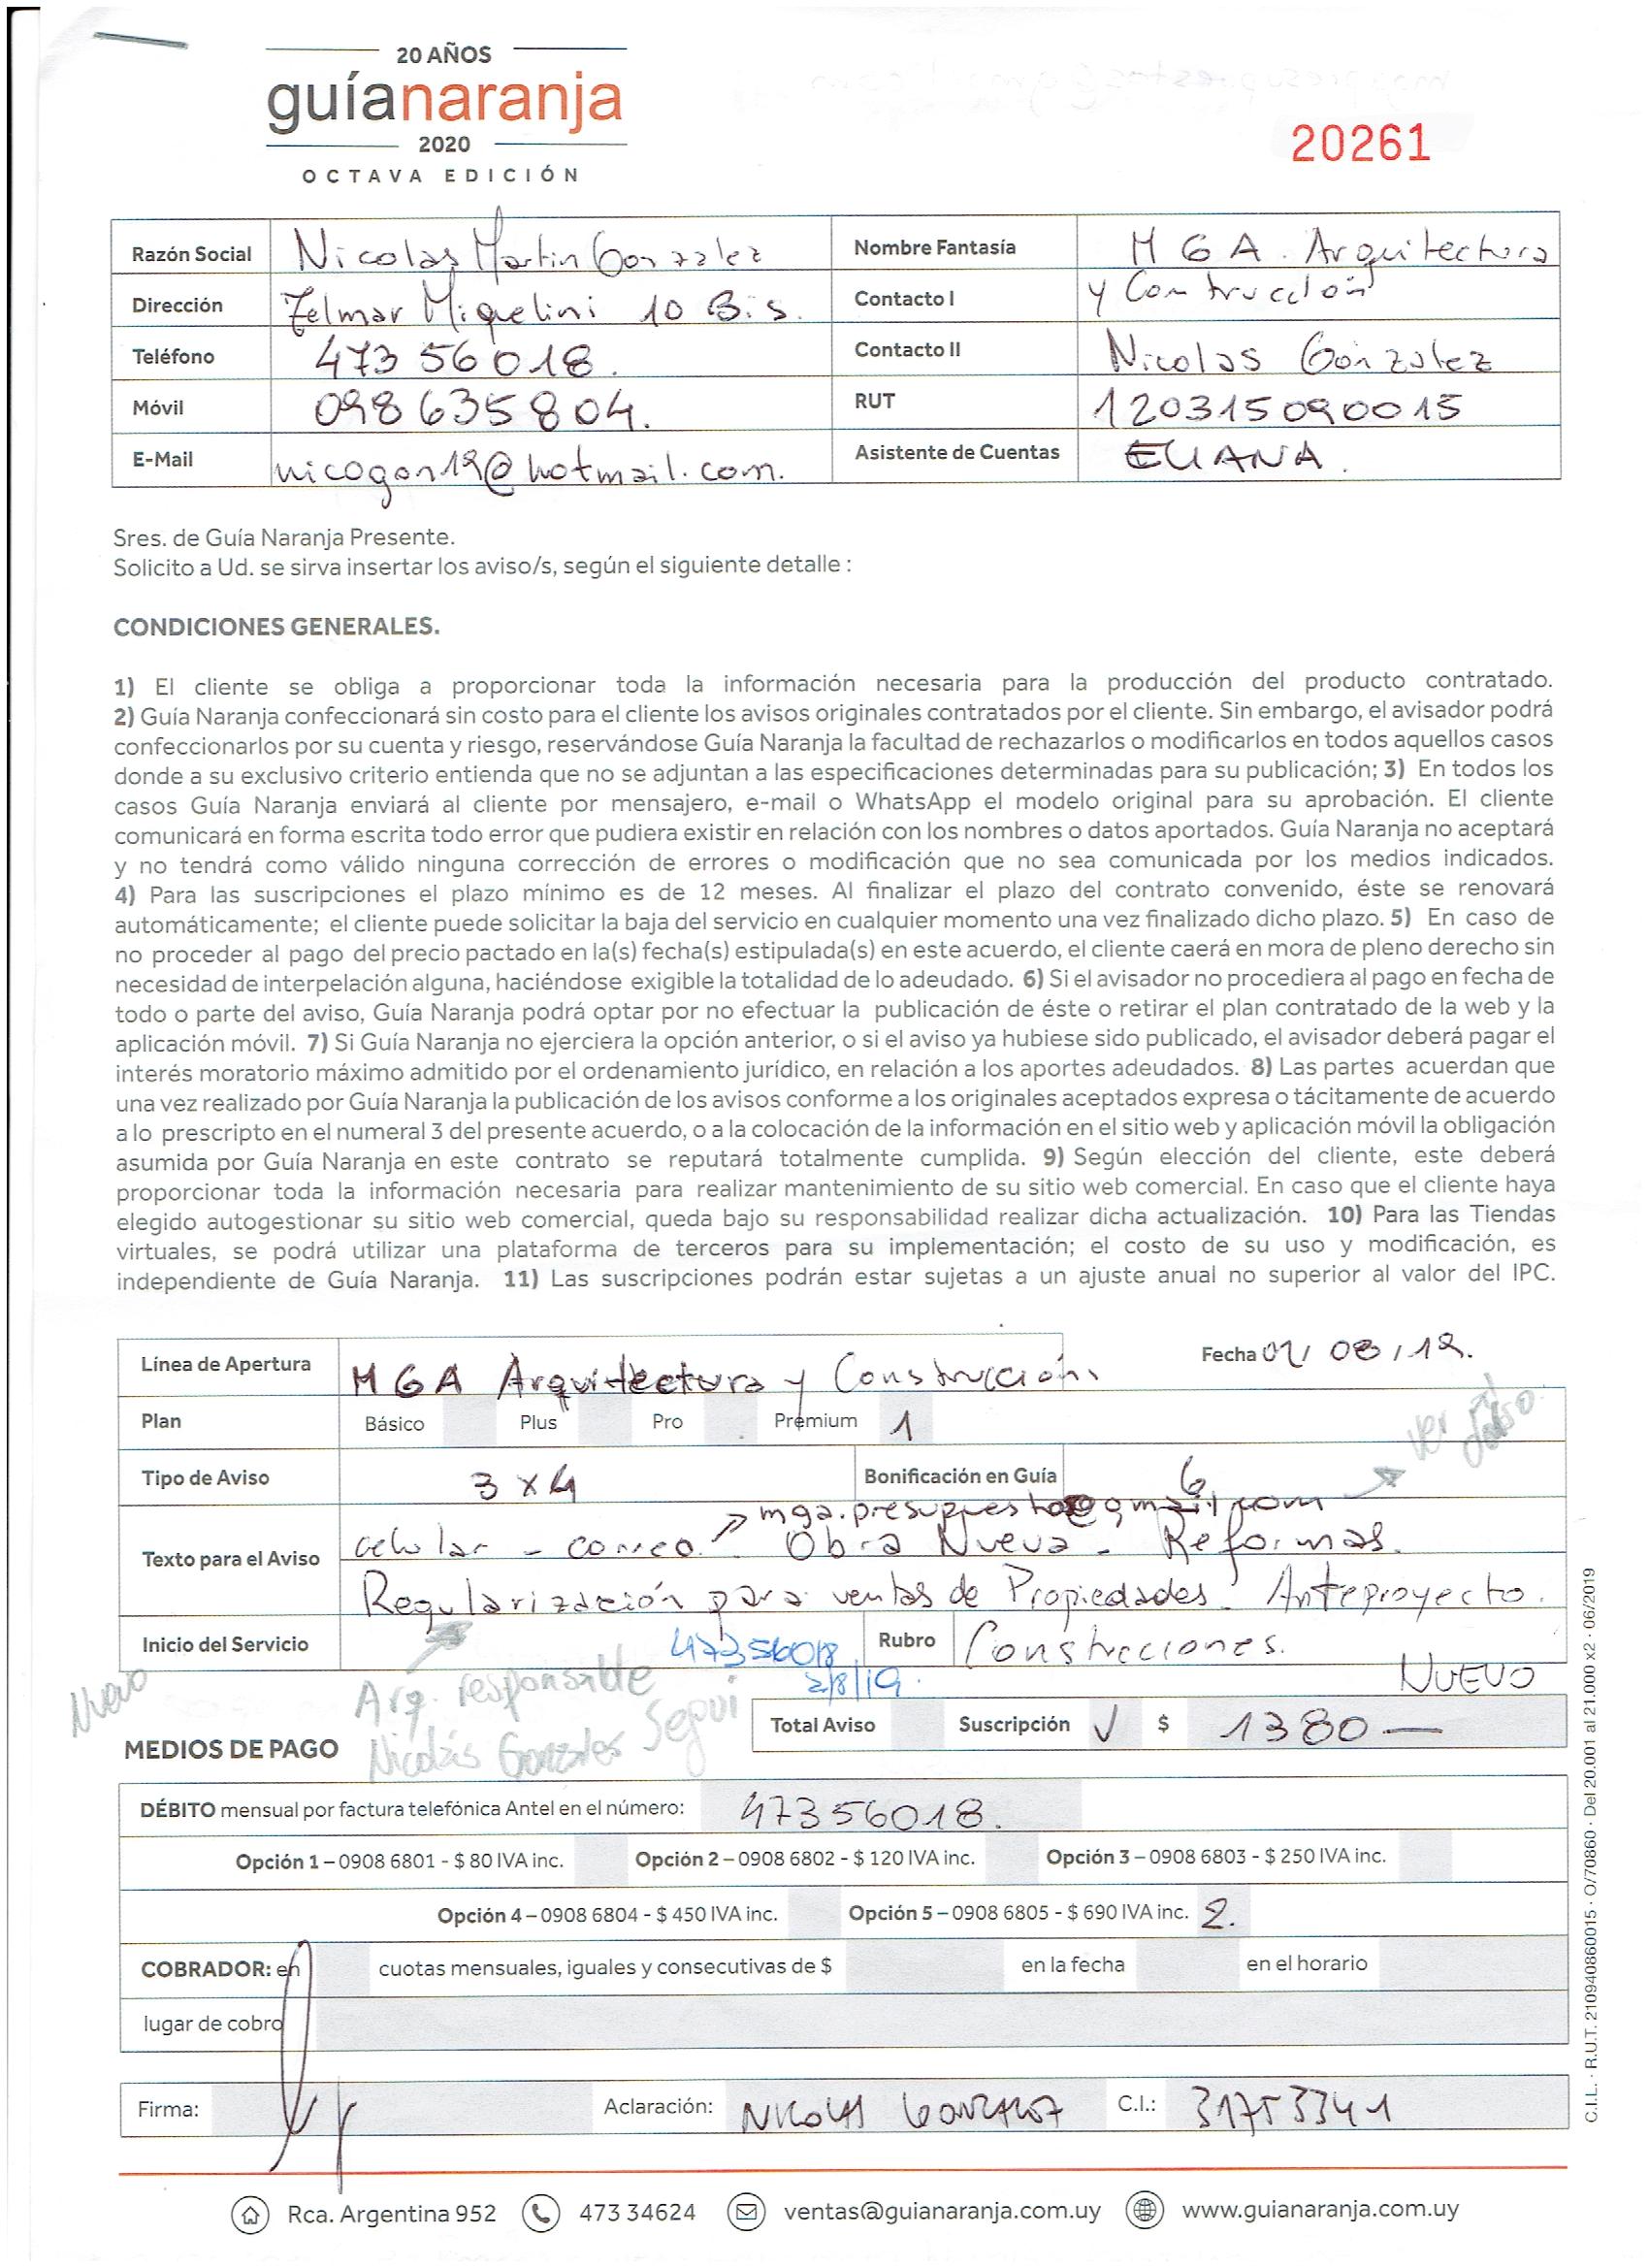 20 AÑOS
guíanaranja
2020
OCTAVA EDICIÓN
20261
Razón Social Nicolas Martin Gonzalez Nombre Fantasía M G A. Arquitectura
Dirección Zelmar Miquelini 10 Bis. Contacto I y Contrucción
Teléfono 473 56018. Contacto II Nicolas Gonzalez
Móvil 098635804. RUT 120315090015
E-Mail nicogon19@hotmail.com. Asistente de Cuentas ELIANA.
Sres. de Guía Naranja Presente.
Solicito a Ud. se sirva insertar los aviso/s, según el siguiente detalle :
CONDICIONES GENERALES.
1) El cliente se obliga a proporcionar toda la información necesaria para la producción del producto contratado.
2) Guía Naranja confeccionará sin costo para el cliente los avisos originales contratados por el cliente. Sin embargo, el avisador podrá
confeccionarlos por su cuenta y riesgo, reservándose Guía Naranja la facultad de rechazarlos o modificarlos en todos aquellos casos
donde a su exclusivo criterio entienda que no se adjuntan a las especificaciones determinadas para su publicación; 3) En todos los
casos Guía Naranja enviará al cliente por mensajero, e-mail o WhatsApp el modelo original para su aprobación. El cliente
comunicará en forma escrita todo error que pudiera existir en relación con los nombres o datos aportados. Guía Naranja no aceptará
y no tendrá como válido ninguna corrección de errores o modificación que no sea comunicada por los medios indicados.
4) Para las suscripciones el plazo mínimo es de 12 meses. Al finalizar el plazo del contrato convenido, éste se renovará
automáticamente; el cliente puede solicitar la baja del servicio en cualquier momento una vez finalizado dicho plazo. 5) En caso de
no proceder al pago del precio pactado en la(s) fecha(s) estipulada(s) en este acuerdo, el cliente caerá en mora de pleno derecho sin
necesidad de interpelación alguna, haciéndose exigible la totalidad de lo adeudado. 6) Si el avisador no procediera al pago en fecha de
todo o parte del aviso, Guía Naranja podrá optar por no efectuar la publicación de éste o retirar el plan contratado de la web y la
aplicación móvil. 7) Si Guía Naranja no ejerciera la opción anterior, o si el aviso ya hubiese sido publicado, el avisador deberá pagar el
interés moratorio máximo admitido por el ordenamiento jurídico, en relación a los aportes adeudados. 8) Las partes acuerdan que
una vez realizado por Guía Naranja la publicación de los avisos conforme a los originales aceptados expresa o tácitamente de acuerdo
a lo prescripto en el numeral 3 del presente acuerdo, o a la colocación de la información en el sitio web y aplicación móvil la obligación
asumida por Guía Naranja en este contrato se reputará totalmente cumplida. 9) Según elección del cliente, este deberá
proporcionar toda la información necesaria para realizar mantenimiento de su sitio web comercial. En caso que el cliente haya
elegido autogestionar su sitio web comercial, queda bajo su responsabilidad realizar dicha actualización. 10) Para las Tiendas
virtuales, se podrá utilizar una plataforma de terceros para su implementación; el costo de su uso y modificación, es
independiente de Guía Naranja. 11) Las suscripciones podrán estar sujetas a un ajuste anual no superior al valor del IPC.
Línea de Apertura M G A Arquitectura y Construcción Fecha 01/ 08 / 19.
Plan Básico Plus Pro Premium 1 ver
Tipo de Aviso 3 x 4 Bonificación en Guía 6
mga.presupuestos@gmail.com
Texto para el Aviso celular - correo. Obra Nueva - Reformas.
Regularización para ventas de Propiedades - Anteproyecto.
Inicio del Servicio 47356018 Rubro Construcciones.
2/8/19 NUEVO
Nuevo Arq. responsable
Nicolás Gonzales Segui
Total Aviso Suscripción √ $ 1380 —
MEDIOS DE PAGO
DÉBITO mensual por factura telefónica Antel en el número: 47356018.
Opción 1 – 0908 6801 - $ 80 IVA inc. Opción 2 – 0908 6802 - $ 120 IVA inc. Opción 3 – 0908 6803 - $ 250 IVA inc.
Opción 4 – 0908 6804 - $ 450 IVA inc. Opción 5 – 0908 6805 - $ 690 IVA inc. 2.
COBRADOR: en cuotas mensuales, iguales y consecutivas de $ en la fecha en el horario
lugar de cobro
Firma: Aclaración: NICOLAS GONZALEZ C.I.: 31753341
Rca. Argentina 952 473 34624 ventas@guianaranja.com.uy www.guianaranja.com.uy
C.I.L. · R.U.T. 210940860015 · O/70860 · Del 20.001 al 21.000 x2 · 06/2019